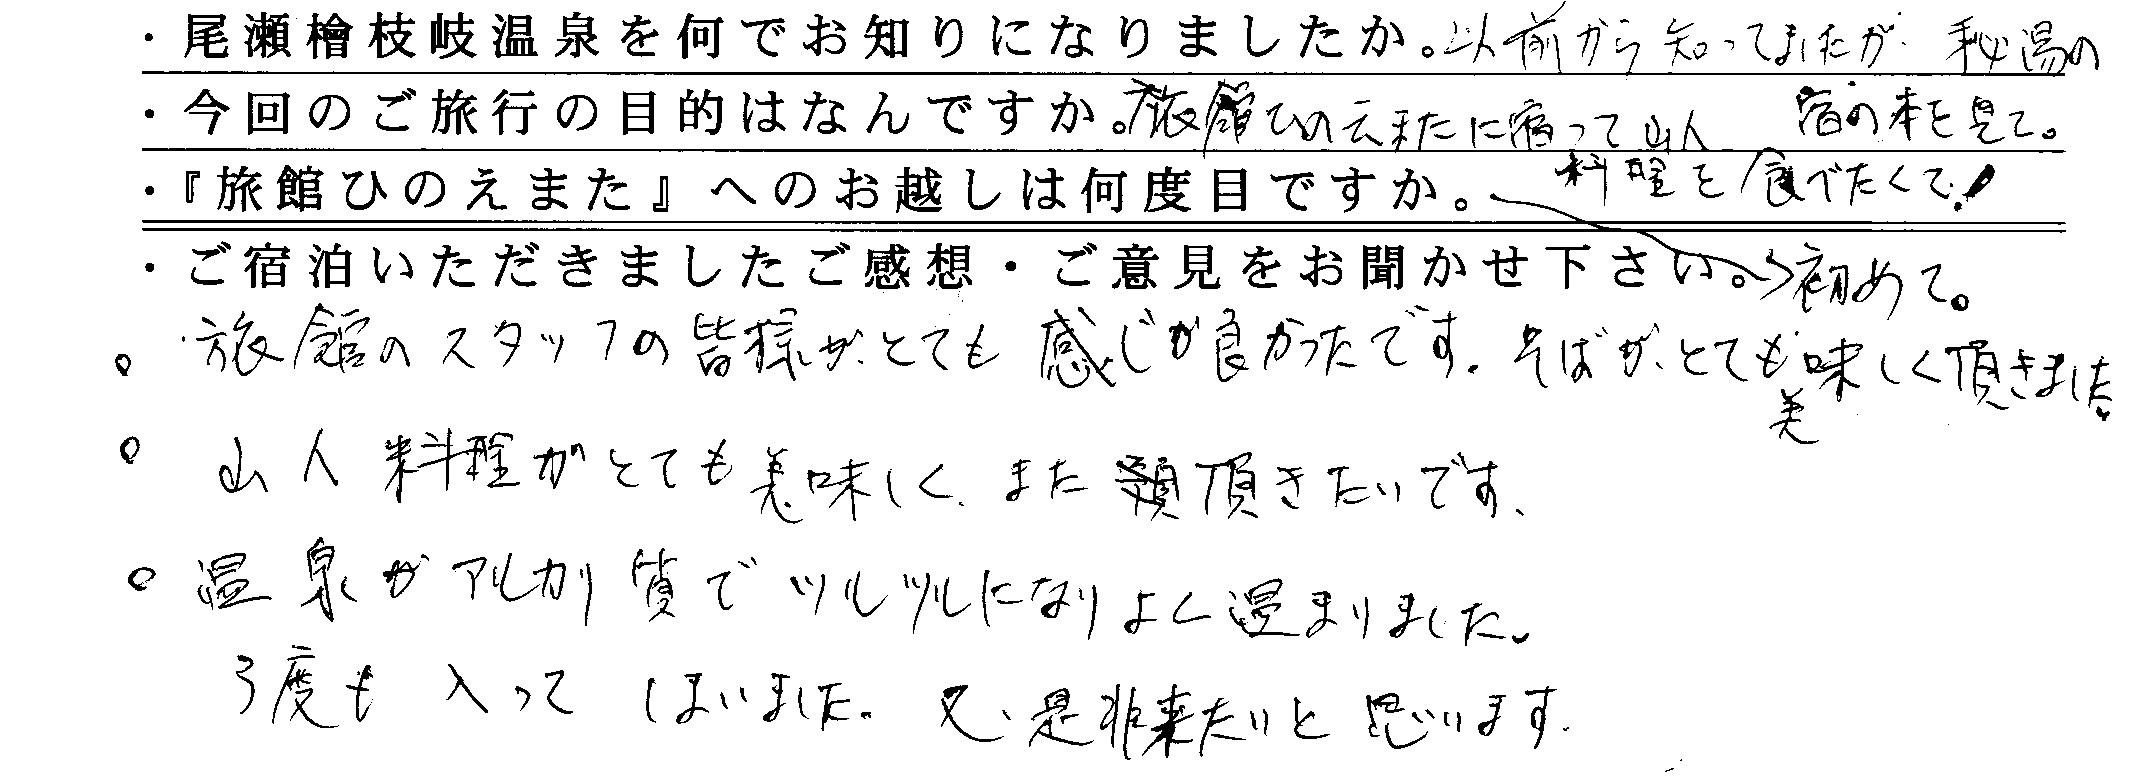 ・尾瀬檜枝岐温泉を何でお知りになりましたか。以前から知ってましたが、秘湯の
宿の本を見て。
・今回のご旅行の目的はなんですか。旅館ひのえまたに宿って山人
料理を食べたくて!
・『旅館ひのえまた』へのお越しは何度目ですか。
初めて。
・ご宿泊いただきましたご感想・ご意見をお聞かせ下さい。
。旅館のスタッフの皆様が、とても感じが良かったです。そばが、とても美味しく頂きました。
。山人料理がとても美味しく、また頂きたいです、
。温泉がアルカリ質でツルツルになりよく温まりました。
3度も入ってしまいました。又、是非来たいと思います。